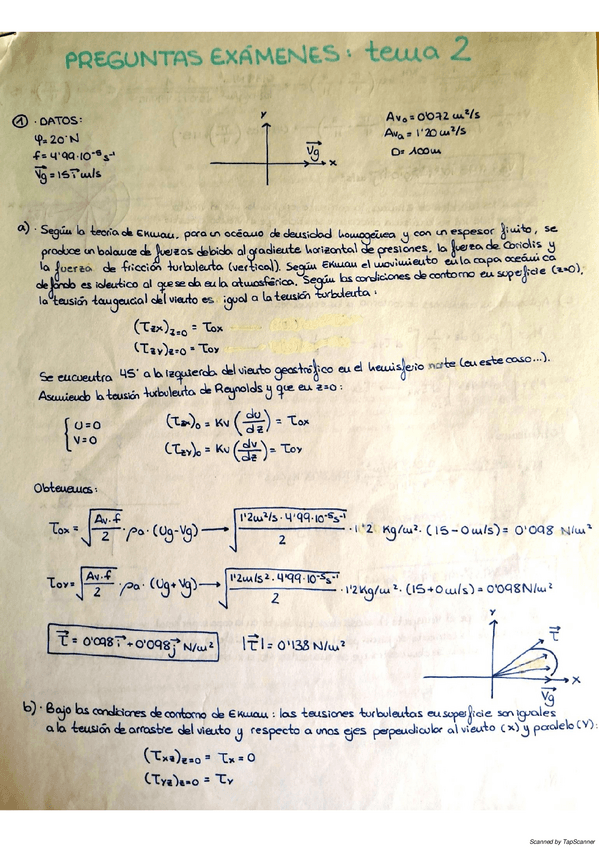 PREGUNTAS EXÁMENES: tema 2
① · DATOS:
φ = 20° N
f = 4'99·10⁻⁵ s⁻¹
Vg = 15 i m/s
y
Vg
x
Avo = 0'072 m²/s
Ava = 1'20 m²/s
D = 100m
a) · Según la teoría de Ekman, para un océano de densidad homogénea y con un espesor finito, se
produce un balance de fuerzas debida al gradiente horizontal de presiones, la fuerza de Coriolis y
la fuerza de fricción turbulenta (vertical). Según Ekman el movimiento en la capa oceánica
de fondo es idéntico al que se da en la atmosférica. Según las condiciones de contorno en superficie (z=0),
la tensión tangencial del viento es igual a la tensión turbulenta:
(τzx)z=0 = τox
(τzy)z=0 = τoy
Se encuentra 45° a la izquierda del viento geostrófico en el hemisferio norte (en este caso...).
Asumiendo la tensión turbulenta de Reynolds y que en z=0:
{ U=0
V=0
(τzx)₀ = Kv (du/dz) = τox
(τzy)₀ = Kv (dv/dz) = τoy
Obtenemos:
τox = √(Av·f/2) · ρa · (Ug-Vg) → √(1'2m²/s · 4'99·10⁻⁵s⁻¹/2) · 1'2 Kg/m² · (15-0 m/s) = 0'098 N/m²
τoy = √(Av·f/2) · ρa · (Ug+Vg) → √(1'2m/s² · 4'99·10⁻⁵s⁻¹/2) · 1'2Kg/m² · (15+0 m/s) = 0'098N/m²
τ = 0'098 i + 0'098 j N/m²
|τ| = 0'138 N/m²
y
τ
x
Vg
b) · Bajo las condiciones de contorno de Ekman: las tensiones turbulentas en superficie son iguales
a la tensión de arrastre del viento y respecto a unos ejes perpendicular al viento (x) y paralelo (y):
(τxz)z=0 = τx = 0
(τyz)z=0 = τy
Scanned by TapScanner